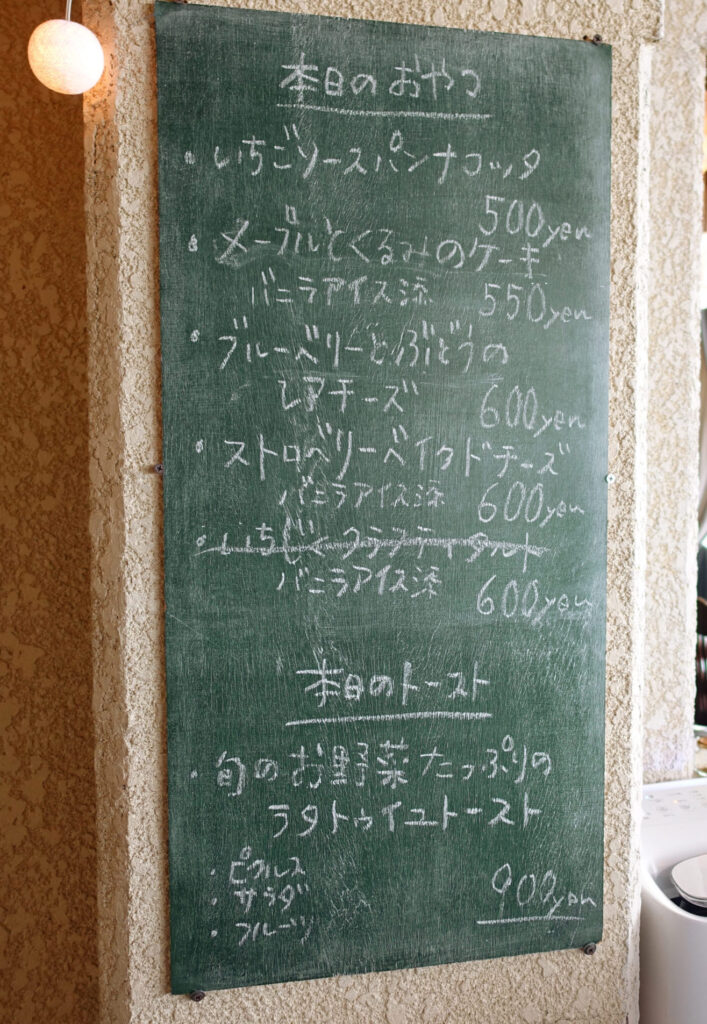 本日のおやつ
・いちごソースパンナコッタ
500yen
・メープルとくるみのケーキ
バニラアイス添 550yen
・ブルーベリーとぶどうの
レアチーズ 600yen
・ストロベリーベイクドチーズ
バニラアイス添 600yen
・いちじくクラフティタルト
バニラアイス添 600yen
本日のトースト
・旬のお野菜たっぷりの
ラタトゥイユトースト
・ピクルス
・サラダ 900yen
・フルーツ